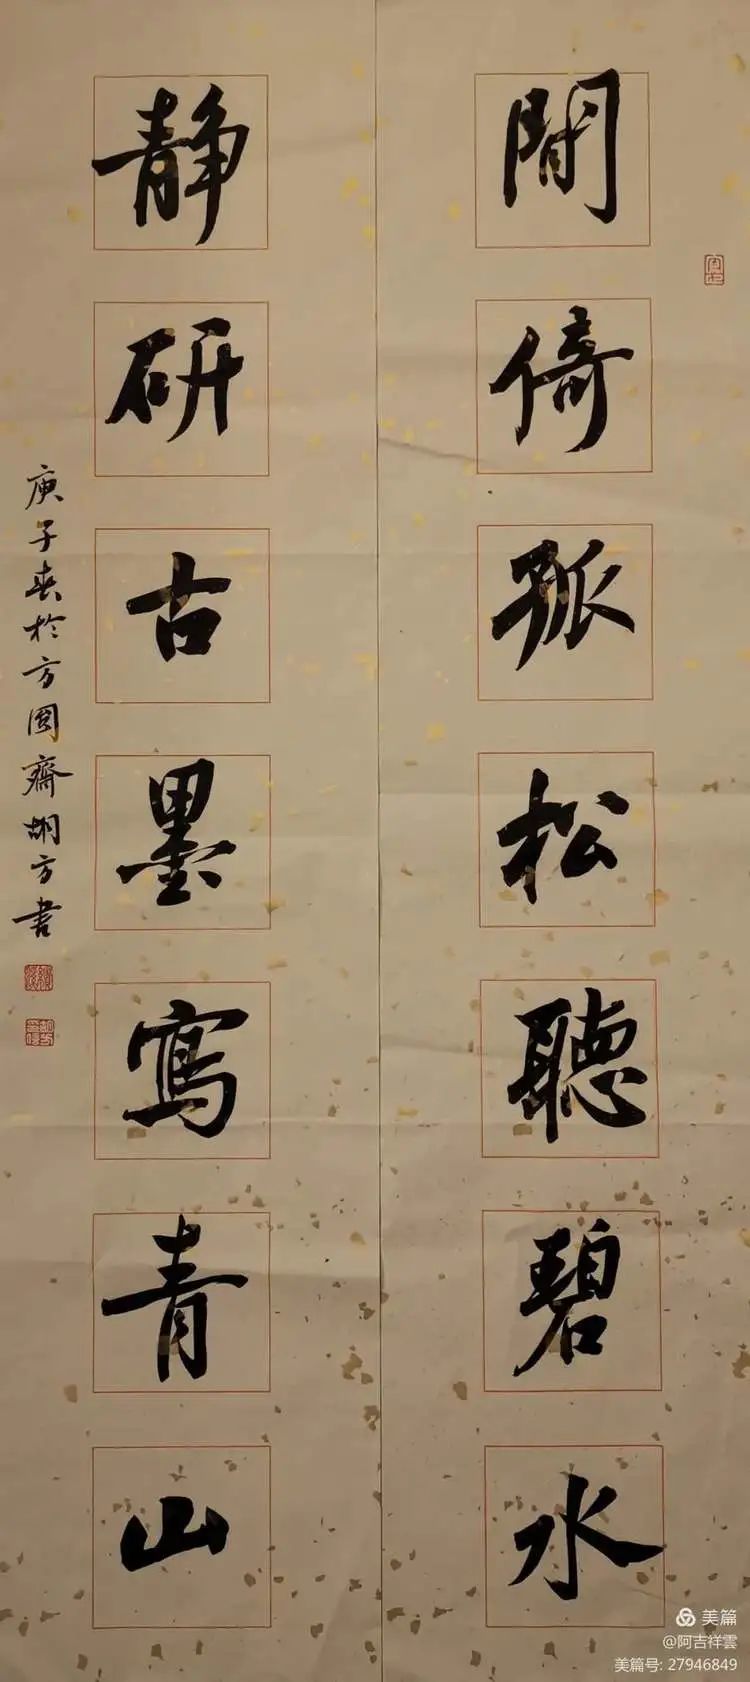 閒倚孤松聽碧水
静研古墨寫青山
庚子春於方圆齋胡方書
美篇
@阿吉祥雲
美篇号: 27946849